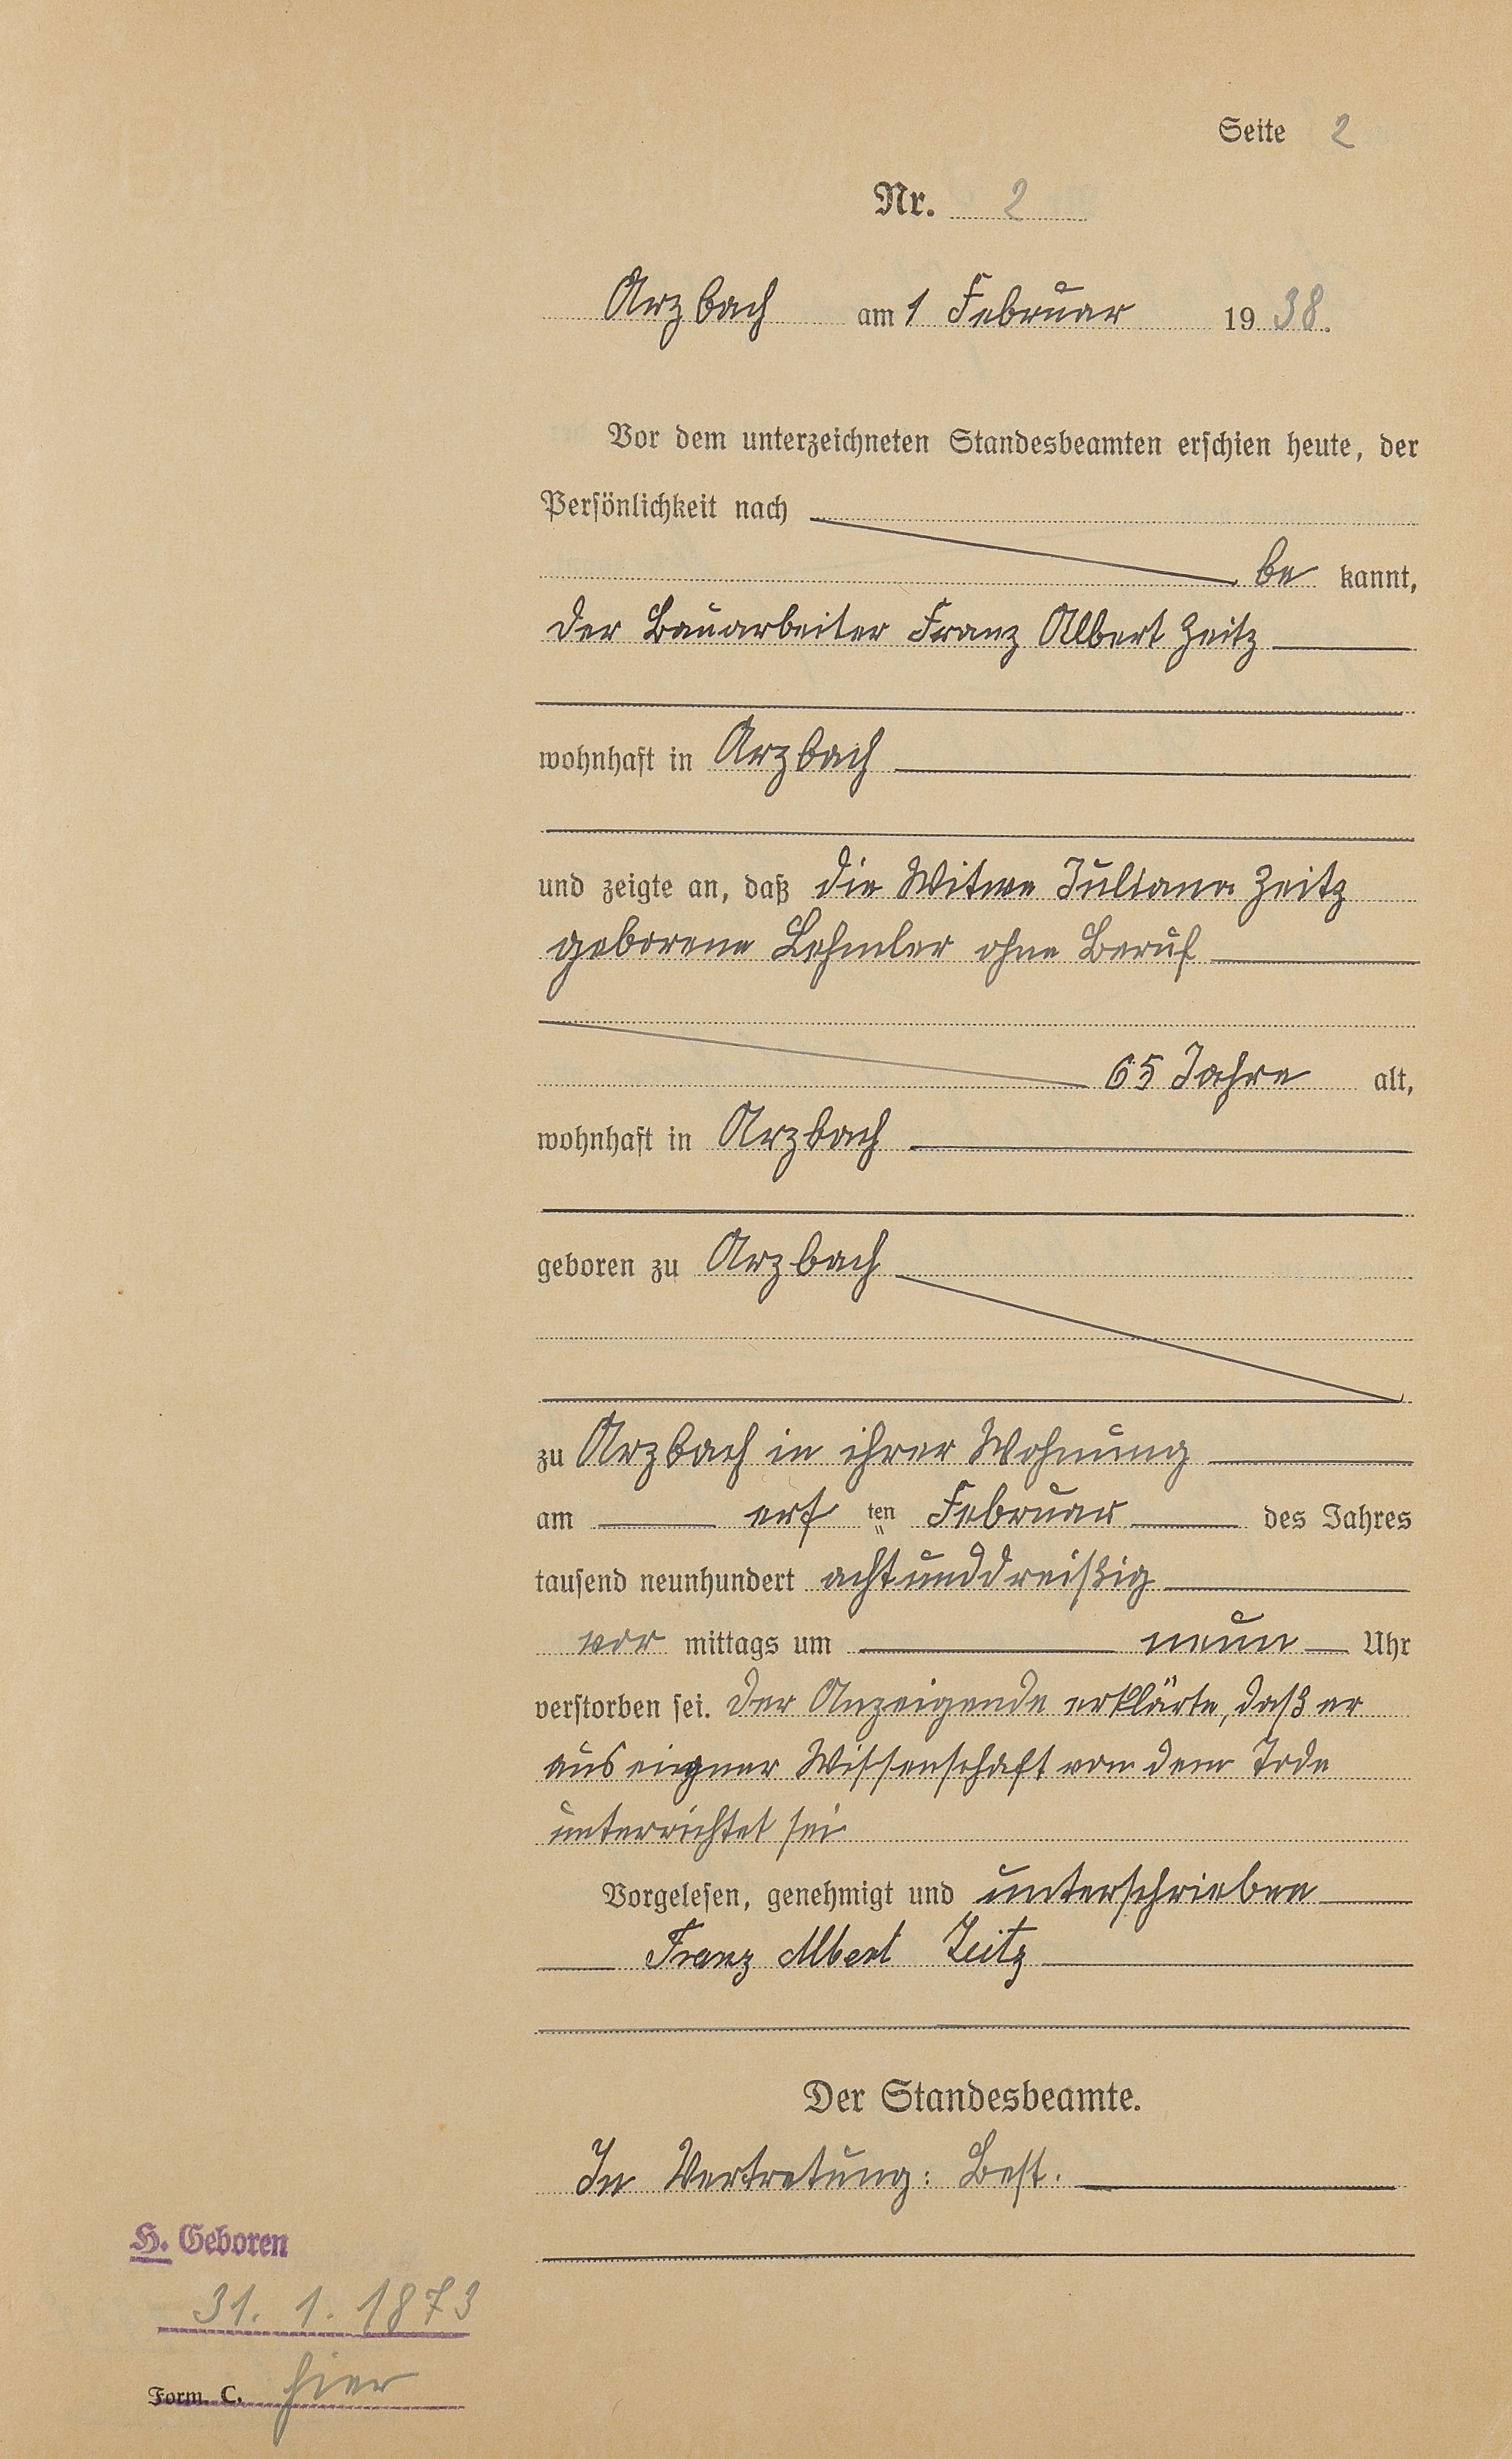 Seite 2
Nr. 2
Arzbach am 1 Februar 1938.
Vor dem unterzeichneten Standesbeamten erschien heute, der
Persönlichkeit nach
be kannt,
der Bauarbeiter Franz Albert Zeitz
wohnhaft in Arzbach
und zeigte an, daß die Witwe Juliana Zeitz
geborene Lehmler ohne Beruf
65 Jahre alt,
wohnhaft in Arzbach
geboren zu Arzbach
zu Arzbach in ihrer Wohnung
am ers ten Februar des Jahres
tausend neunhundert achtunddreißig
vor mittags um neun Uhr
verstorben sei. Der Anzeigende erklärte, daß er
aus eigner Wissenschaft von dem Tode
unterrichtet sei
Vorgelesen, genehmigt und unterschrieben
Franz Albert Zeitz
Der Standesbeamte.
In Vertretung: Best.
H. Geboren
31. 1. 1873
Form. C. hier